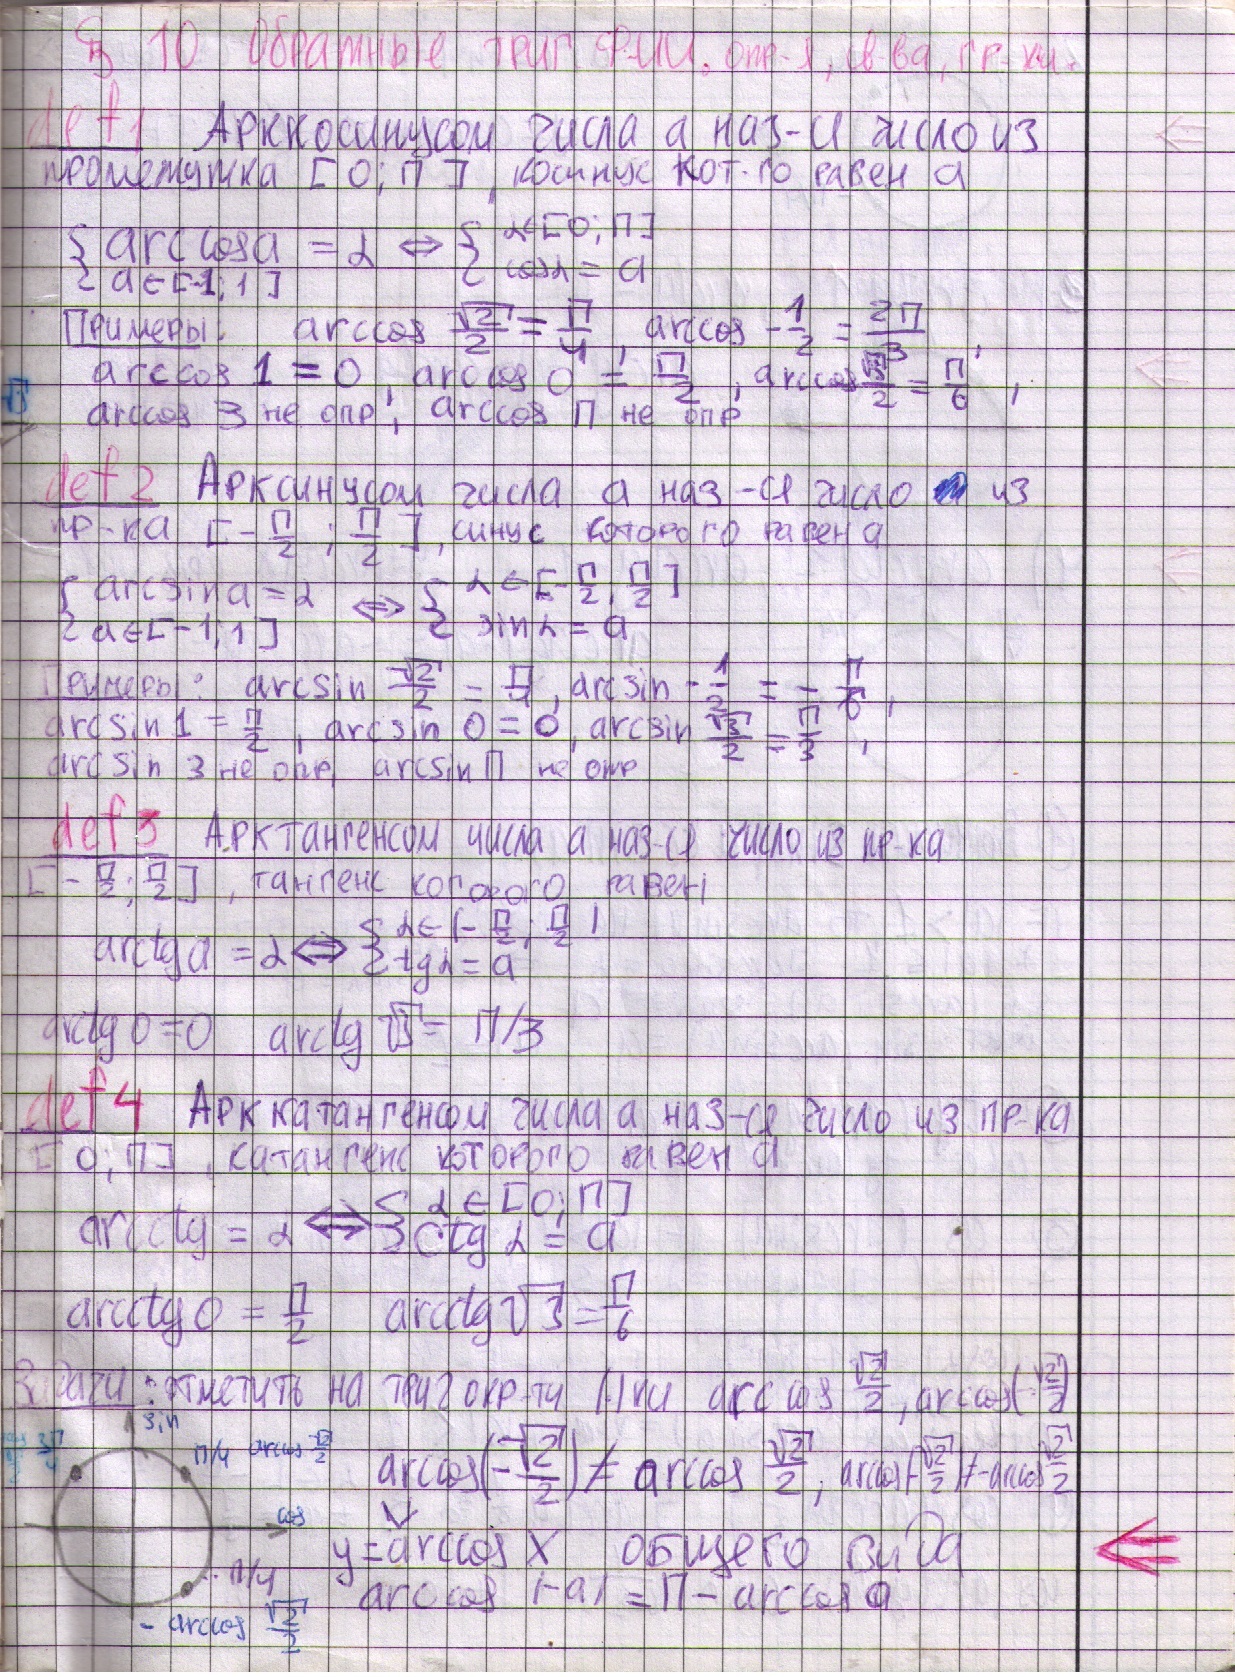 § 10 Обратные триг. ф-ии. опр-я, св-ва, гр-ки.
def 1 Арккосинусом числа а наз-ся число из
промежутка [0; П], косинус кот-го равен а
{ arccos a = α ⇔ { α ∈ [0; П]
{ a ∈ [-1; 1] { cos α = a
Примеры: arccos √2/2 = П/4, arccos -1/2 = 2П/3,
arccos 1 = 0, arccos 0 = П/2, arccos √3/2 = П/6,
arccos 3 не опр, arccos П не опр
def 2 Арксинусом числа а наз-ся число из
пр-ка [-П/2; П/2], синус которого равен а
{ arcsin a = α ⇔ { α ∈ [-П/2; П/2]
{ a ∈ [-1; 1] { sin α = a
Примеры: arcsin √2/2 = П/4, arcsin -1/2 = -П/6,
arcsin 1 = П/2, arcsin 0 = 0, arcsin √3/2 = П/3,
arcsin 3 не опр, arcsin П не опр
def 3 Арктангенсом числа а наз-ся число из пр-ка
[-П/2; П/2], тангенс которого равен
arctg a = α ⇔ { α ∈ (-П/2; П/2)
{ tg α = a
arctg 0 = 0 arctg √3 = П/3
def 4 Арккатангенсом числа а наз-ся число из пр-ка
[0; П], катангенс которого равен а
arcctg = α ⇔ { α ∈ [0; П]
{ ctg α = a
arcctg 0 = П/2 arcctg √3 = П/6
Задачи: отметить на триг окр-ти arccos √2/2, arccos(-√2/2)
sin
3П/4 П/4 arccos √2/2
arccos(-√2/2) ≠ arccos √2/2, arccos(-√2/2) ≠ -arccos √2/2
cos
y = arccos x общего вида
-П/4
arccos (-a) = П - arccos a
- arccos √2/2